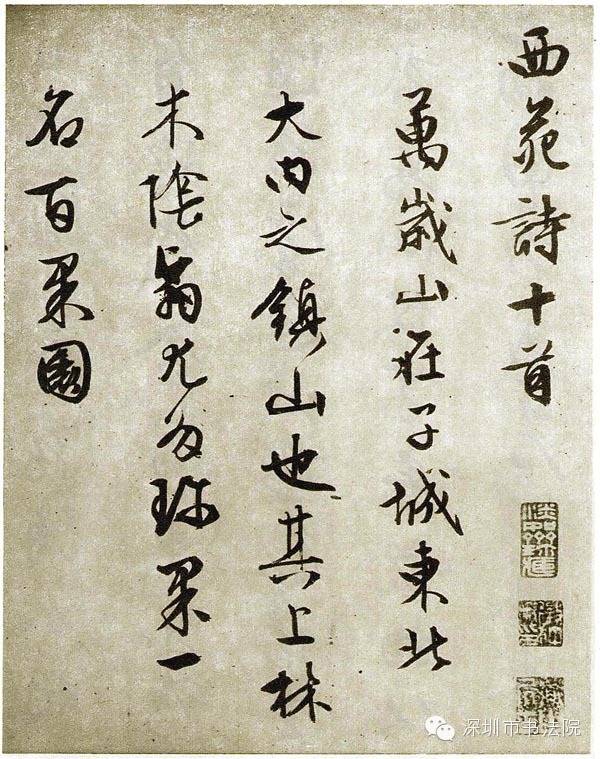 西苑詩十首
萬歲山在子城東北
大内之鎮山也其上林
木陰翳尤多珎果一
名百果園
深圳市书法院